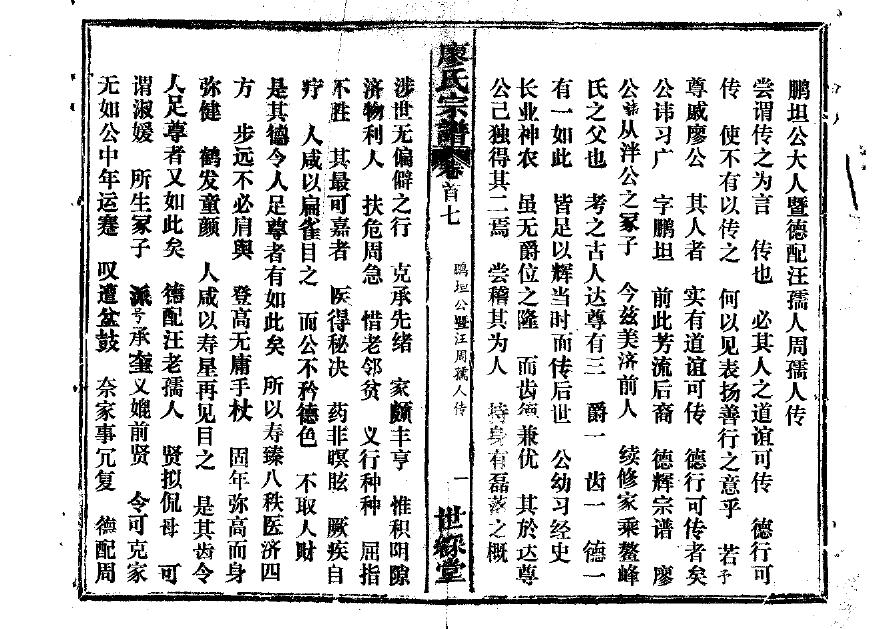 鹏坦公大人暨德配汪孺人周孺人传
尝谓传之为言 传也 必其人之道谊可传 德行可
传 使不有以传之 何以见表扬善行之意乎 若予
尊戚廖公 其人者 实有道谊可传 德行可传者矣
公讳习广 字鹏坦 前此芳流后裔 德辉宗谱 廖
公 从泮公之冢子 今兹美济前人 续修家乘鳌峰
氏之父也 考之古人达尊有三 爵一 齿一 德一
有一如此 皆足以辉当时而传后世 公幼习经史
长业神农 虽无爵位之隆 而齿德兼优 其於达尊
公己独得其二焉 尝稽其为人 持身有磊落之概
廖氏宗谱 卷首七 鹏坦公暨汪周孺人传 一 世綵堂
涉世无偏僻之行 克承先绪 家颇丰亨 惟积阴隙
济物利人 扶危周急 惜老邻贫 义行种种 屈指
不胜 其最可嘉者 医得秘决 药非暝眩 厥疾自
疗 人咸以扁雀目之 而公不矜德色 不取人财
是其德令人足尊者有如此矣 所以寿臻八秩医济四
方 步远不必肩舆 登高无庸手杖 固年弥高而身
弥健 鹤发童颜 人咸以寿星再见目之 是其齿令
人足尊者又如此矣 德配汪老孺人 贤拟侃母 可
谓淑媛 所生冢子 派号承 义媲前贤 令可克家
无如公中年运蹇 叹遭盆鼓 奈家事冗复 德配周